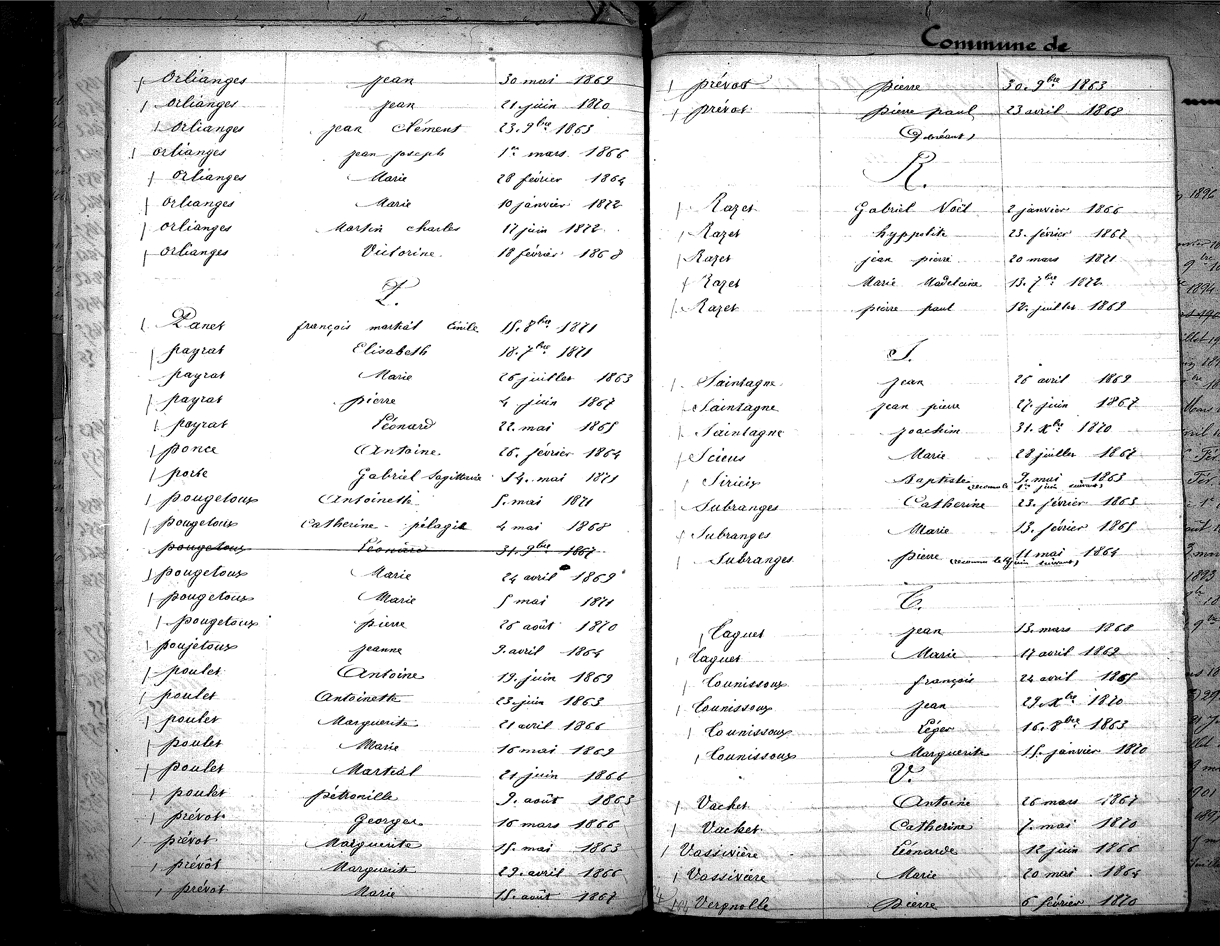 Orlianges jean 30 mai 1869
Orlianges jean 21 juin 1870
Orlianges jean Clément 23. 9bre 1863
Orlianges jean joseph 1er mars 1866
Orlianges Marie 28 février 1864
Orlianges Marie 10 janvier 1872
Orlianges Martin charles 17 juin 1872
Orlianges Victorine 18 février 1868
P.
Panet françois martial Emile 15. 8bre 1871
payrat Elisabeth 18. 7bre 1871
payrat Marie 26 juillet 1863
payrat pierre 4 juin 1867
payrat Léonard 22. mai 1865
ponce Antoine 26. février 1864
porte Gabriel Sagittaire 14. mai 1871
pougetoux Antoinette 5. mai 1871
pougetoux Catherine pélagie 4 mai 1868
pougetoux Léonard 31. 9bre 1867
pougetoux Marie 24 avril 1869
pougetoux Marie 5 mai 1871
pougetoux pierre 26 août 1870
poujetoux jeanne 9. avril 1864
poulet Antoine 19. juin 1869
poulet Antoinette 23 juin 1863
poulet Marguerite 21 avril 1866
poulet Marie 16 mai 1869
poulet Martial 21 juin 1866
poulet pétronille 9. août 1863
prévot Georges 16 mars 1866
prévot Marguerite 15. mai 1863
prévot Marguerite 29. avril 1866
prévot Marie 15. août 1867
Commune de
prévot pierre 30. 9bre 1863
prévot pierre paul 23 avril 1868
Q (néant)
R.
Razet Gabriel Noël 2 janvier 1866
Razet hyppolite 23. février 1867
Razet jean pierre 20 mars 1871
Razet Marie Madeleine 13. 7bre 1872
Razet pierre paul 12. juillet 1869
S.
Saintagne jean 26 avril 1869
Saintagne jean pierre 27. juin 1867
Saintagne joachim 31. Xbre 1870
Scieus Marie 28 juillet 1867
Sirieix Baptiste 9. mai 1863
(reconnu le 1er juin suivant)
Subranges Catherine 23. février 1863
Subranges Marie 13. février 1865
Subranges pierre 11 mai 1864
(reconnu le juin suivant)
T.
Taguet jean 13. mars 1868
Taguet Marie 17 avril 1862
Tounissoux françois 24 avril 1865
Tounissoux jean 29. Xbre 1870
Tounissoux Léger 16. 8bre 1863
Tounissoux Marguerite 15. janvier 1870
V.
Vacher Antoine 26 mars 1867
Vacher Catherine 7. mai 1870
Vassivière Léonarde 12 juin 1866
Vassivière Marie 20 mai 1864
Vergnolle pierre 6 février 1870